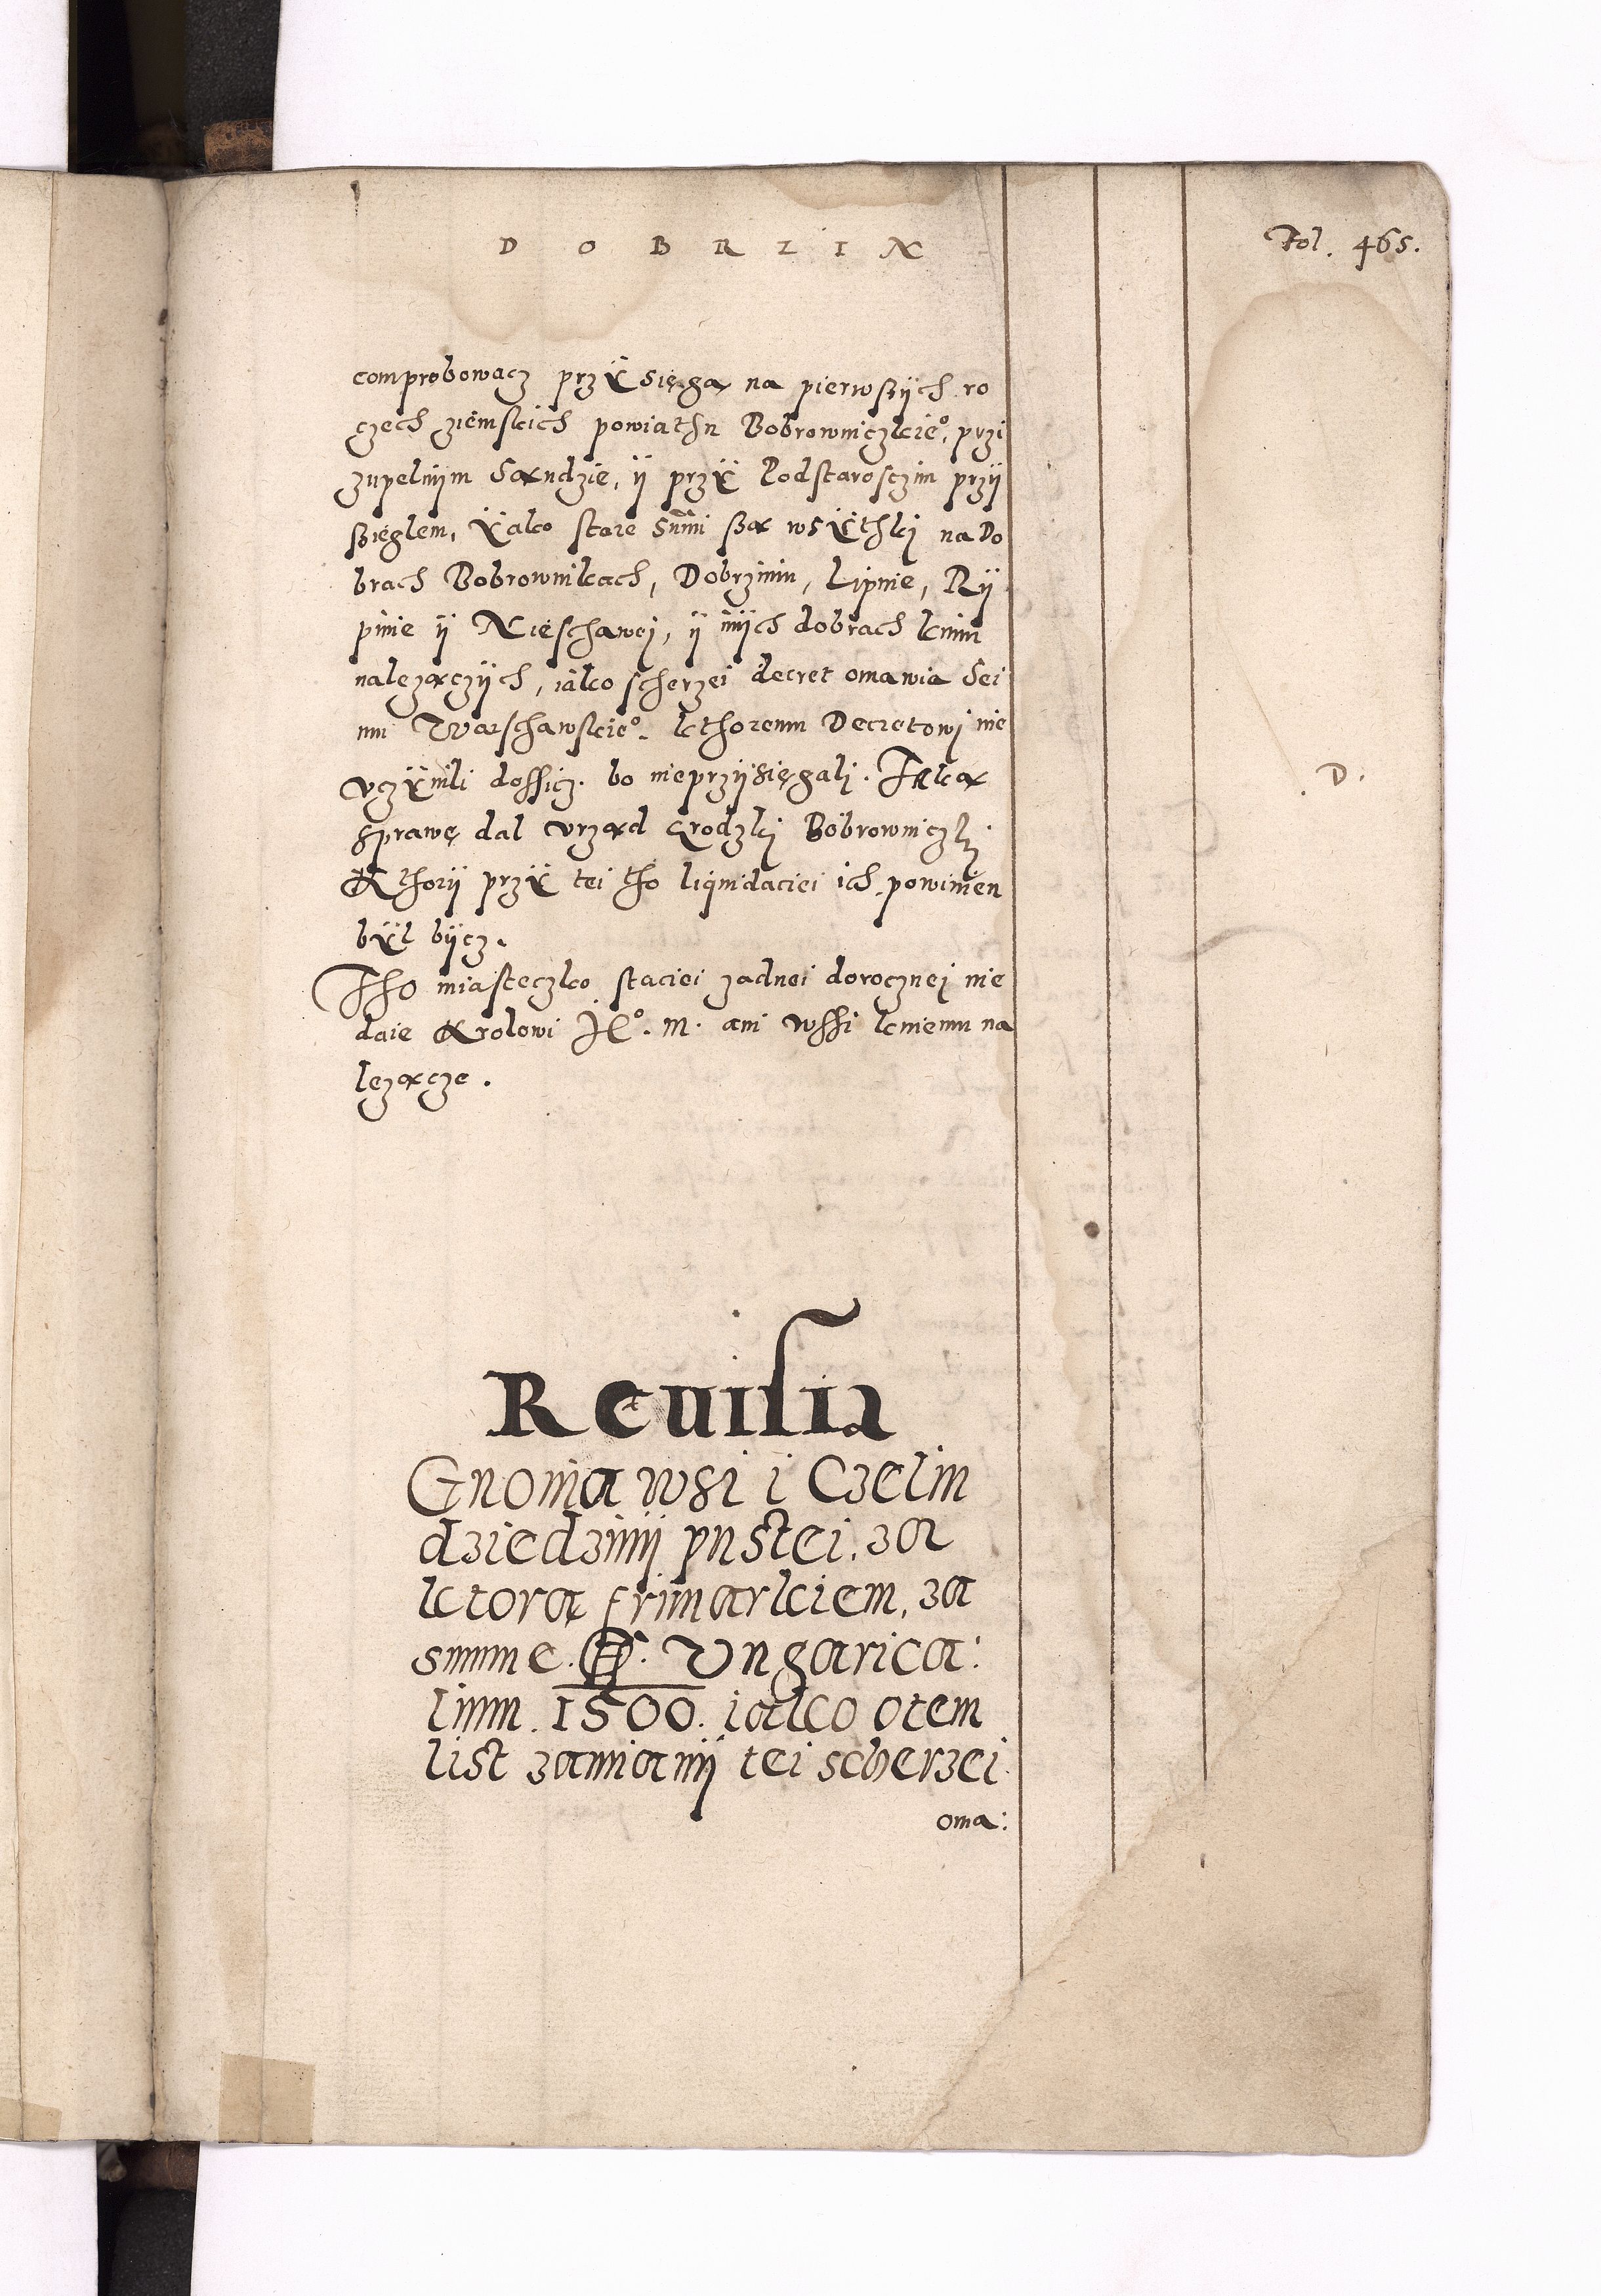 D O B R Z I N
Fol. 465.
comprobowacz przÿsięgą na pierwszÿch ro
czech ziemskich powiathu Bobrowniczkie°, przi
zupelnÿm Sąndzie, ÿ przÿ Podstarosczim przÿ
szięglem, ÿako stare Sum̃i szą wsÿthkj na Do
brach Bobrownikach, Dobrziniu, Lipnie, Rÿ
pinie ÿ Nieschawej, ÿ inÿch dobrach knim
nalezączÿch, iako scherzei decret omawia Sei
mu Warschawskie°. kthoremu Decretowj nie
vczÿnili dossicz. bo nieprzÿsięgalj. Teką
sprawę dal vrząd Grodzkj Bobrowniczkj
Kthorÿ przÿ tei tho liquidaciei ich powinien
bÿl bÿcz.
Tho miasteczko staciei zadnei dorocznej nie
daie Krolowi Je°. M. ani wssi kniemu na
lezącze.
D.
Reuisia
Gnoina wsi i Czelm
dziedzinÿ pustei, za
ktorą frimarkiem, za
summe. Vngarica:
lium. 1500. iako otem
list zamianÿ tei scherzei
oma: